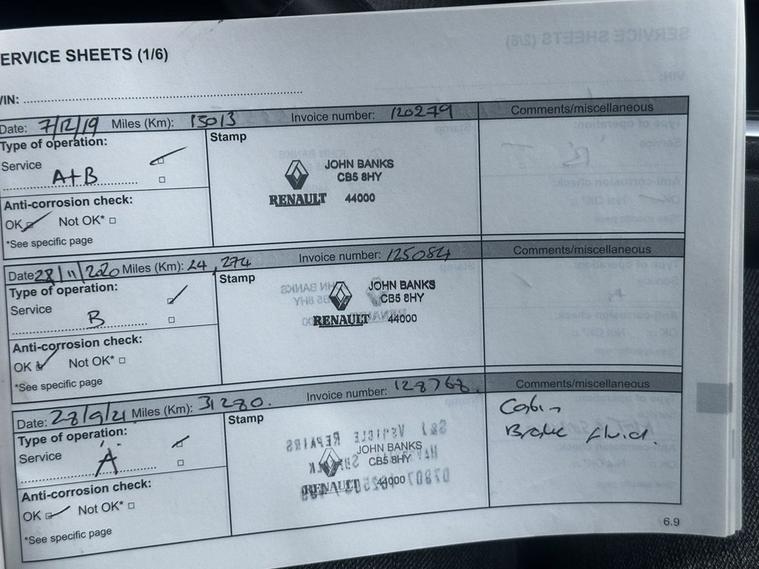 ERVICE SHEETS (1/6)
VIN:
Date: 7/12/19 Miles (Km): 15013 Invoice number: 120279 Comments/miscellaneous
Type of operation:
Service
A+B
Anti-corrosion check:
OK Not OK*
*See specific page
Stamp
JOHN BANKS
CB5 8HY
RENAULT 44000
Date: 28/11/2020 Miles (Km): 24,274 Invoice number: 125084 Comments/miscellaneous
Type of operation:
Service
B
Anti-corrosion check:
OK Not OK*
*See specific page
Stamp
JOHN BANKS
CB5 8HY
RENAULT 44000
Date: 28/9/21 Miles (Km): 31280. Invoice number: 128768. Comments/miscellaneous
Type of operation:
Service
A
Anti-corrosion check:
OK Not OK*
*See specific page
Stamp
JOHN BANKS
CB5 8HY
RENAULT 44000
Cabin
Brake fluid.
6.9
SERVICE SHEETS (2/6)